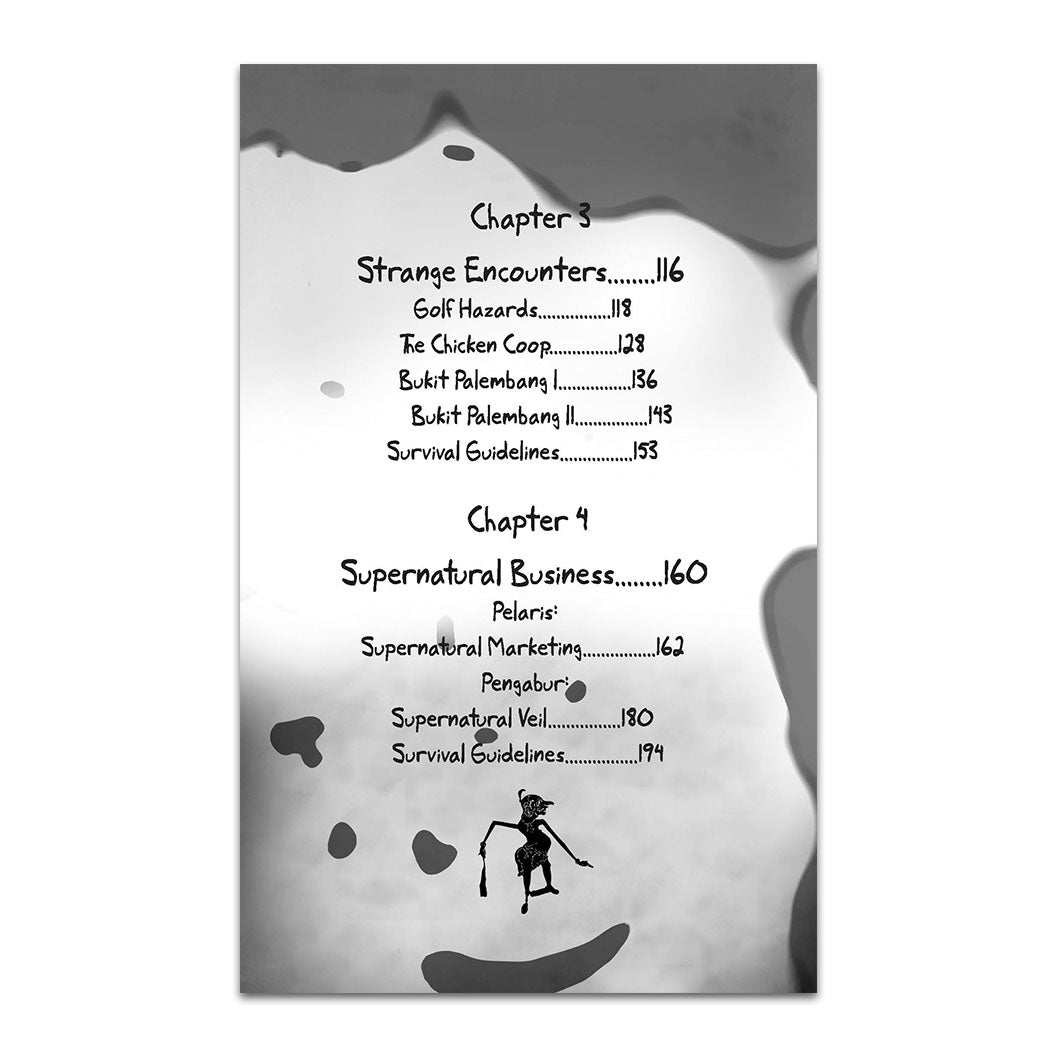 Chapter 3
Strange Encounters........116
Golf Hazards................118
The Chicken Coop...............128
Bukit Palembang I................136
Bukit Palembang II................143
Survival Guidelines................153
Chapter 4
Supernatural Business........160
Pelaris:
Supernatural Marketing................162
Pengabur:
Supernatural Veil................180
Survival Guidelines................194